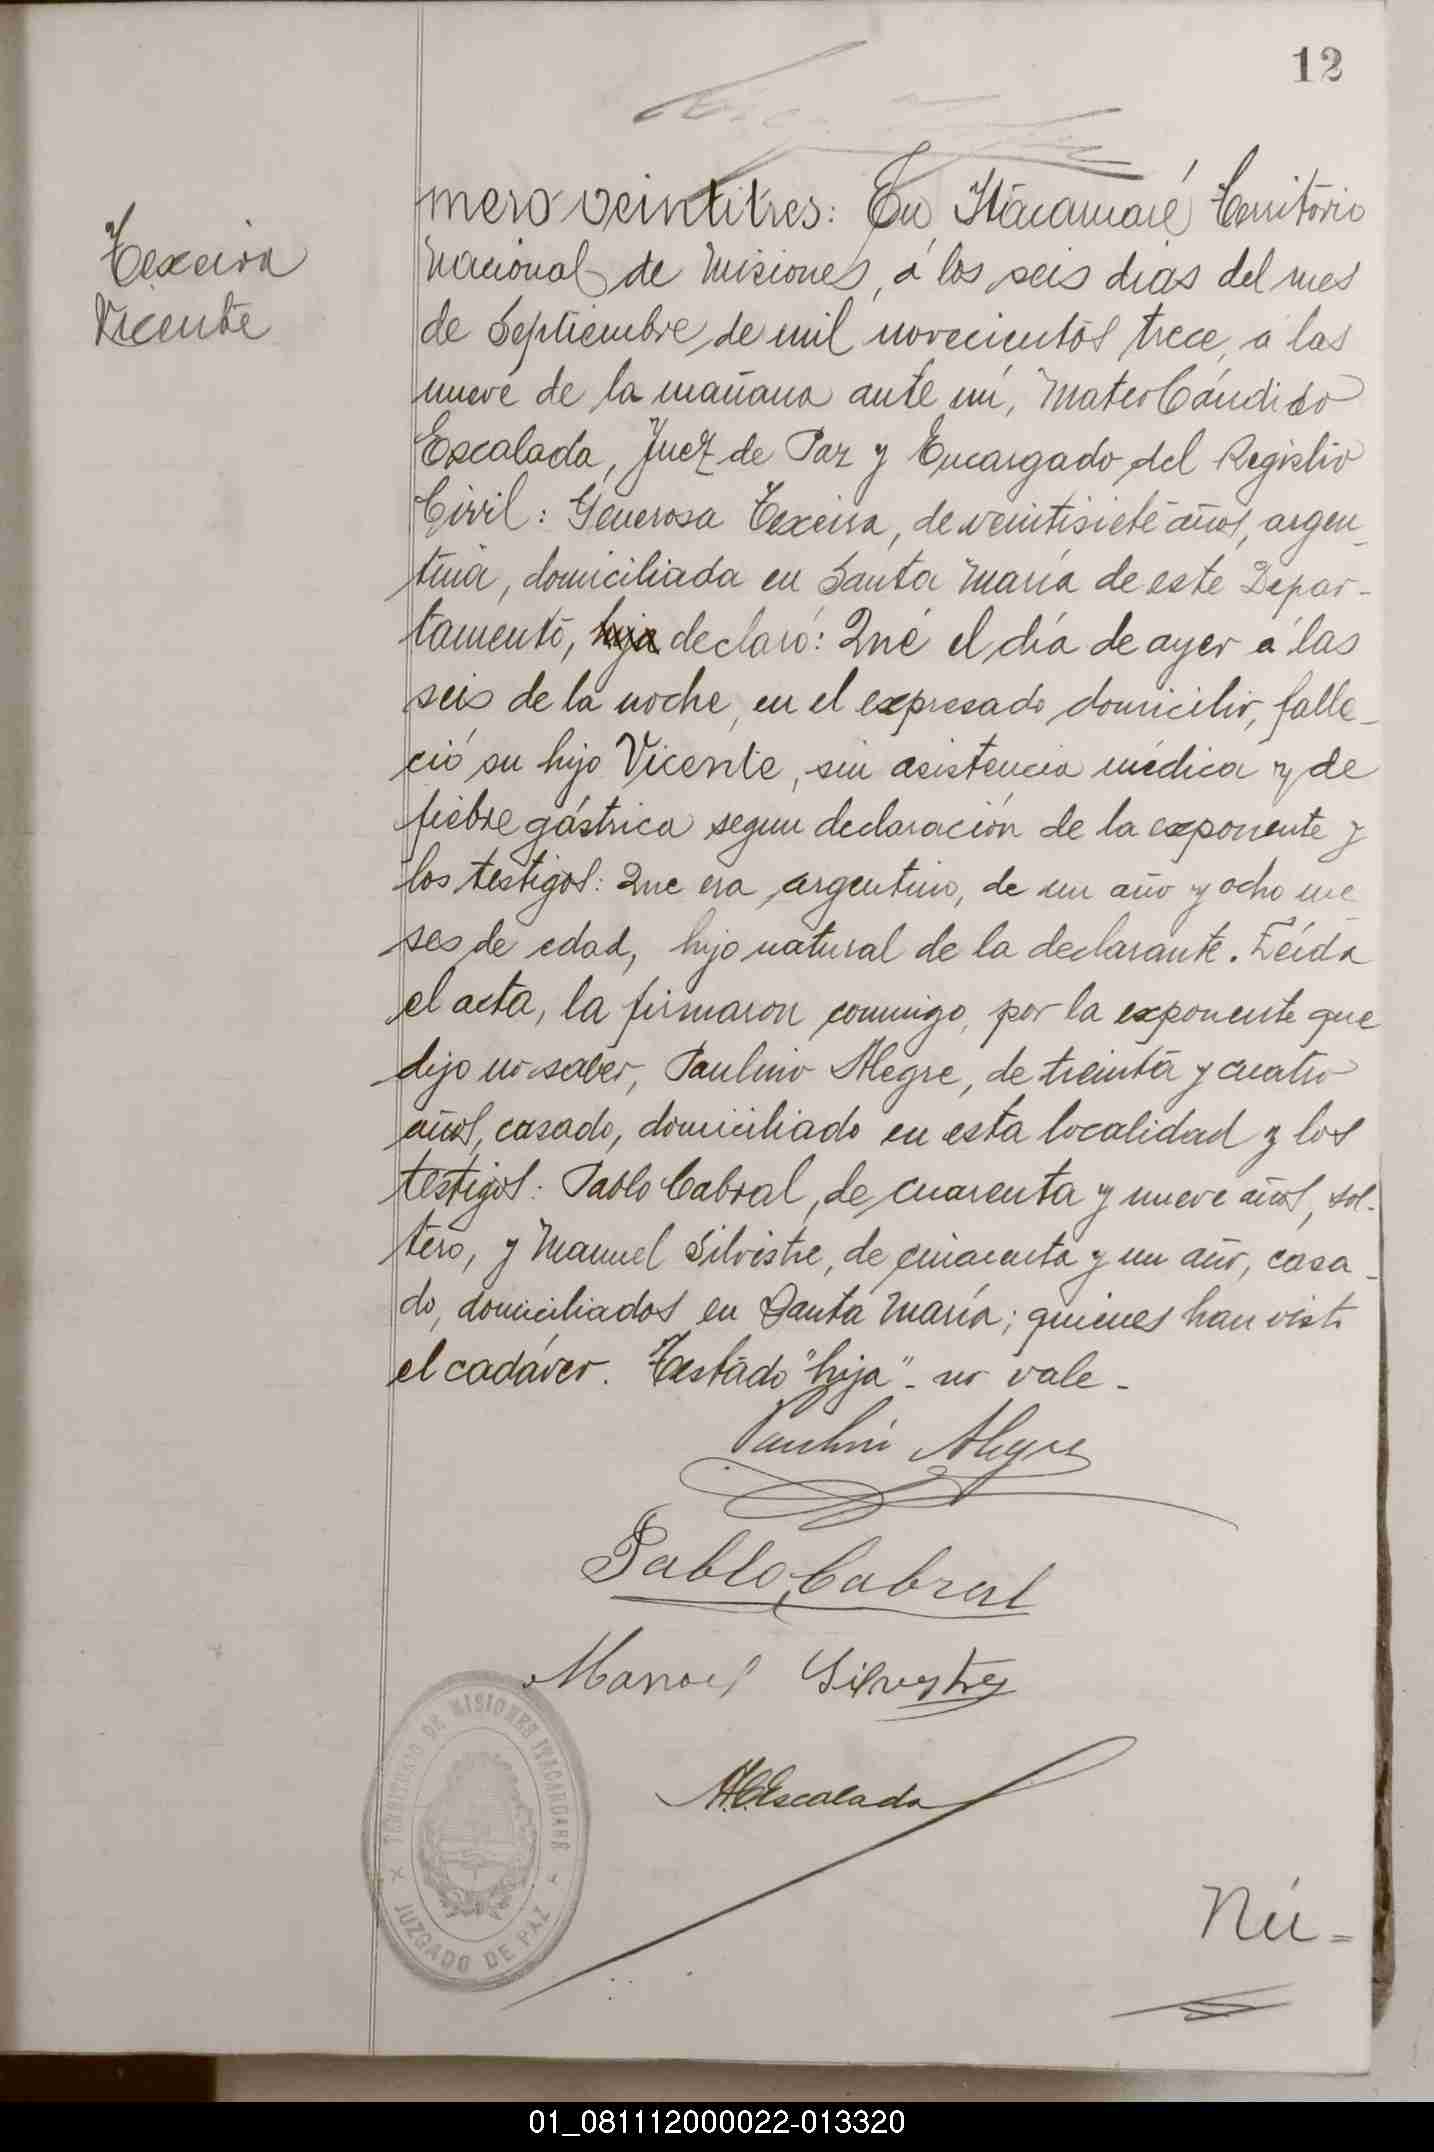 12
Texeira
Vicente
mero veintitres: En Itacaruaré Territorio
Nacional de Misiones, á los seis dias del mes
de Septiembre de mil novecientos trece, á las
nueve de la mañana ante mí, Mateo Cándido
Escalada, Juez de Paz y Encargado del Registro
Civil: Generosa Texeira, de veintisiete años, argen-
tina, domiciliada en Santa María de este Depar-
tamento, hija declaró: Que el día de ayer á las
seis de la noche, en el expresado domicilio, falle-
ció su hijo Vicente, sin asistencia médica y de
fiebre gástrica segun declaración de la exponente y
los testigos: Que era argentino, de un año y ocho me
ses de edad, hijo natural de la declarante. Leída
el acta, la firmaron conmigo, por la exponente que
dijo no saber, Paulino Alegre, de treinta y cuatro
años, casado, domiciliado en esta localidad y los
testigos: Pablo Cabral, de cuarenta y nueve años, sol-
tero, y Manuel Silvestre, de cincuenta y un año, casa-
do, domiciliados en Santa María; quienes han visto
el cadáver. Testado "hija" - no vale -
Paulino Alegre
Pablo Cabral
Manoel Silvestre
M.C. Escalada
TERRITORIO DE MISIONES ITACARUARE
JUZGADO DE PAZ
Nú=
01_081112000022-013320